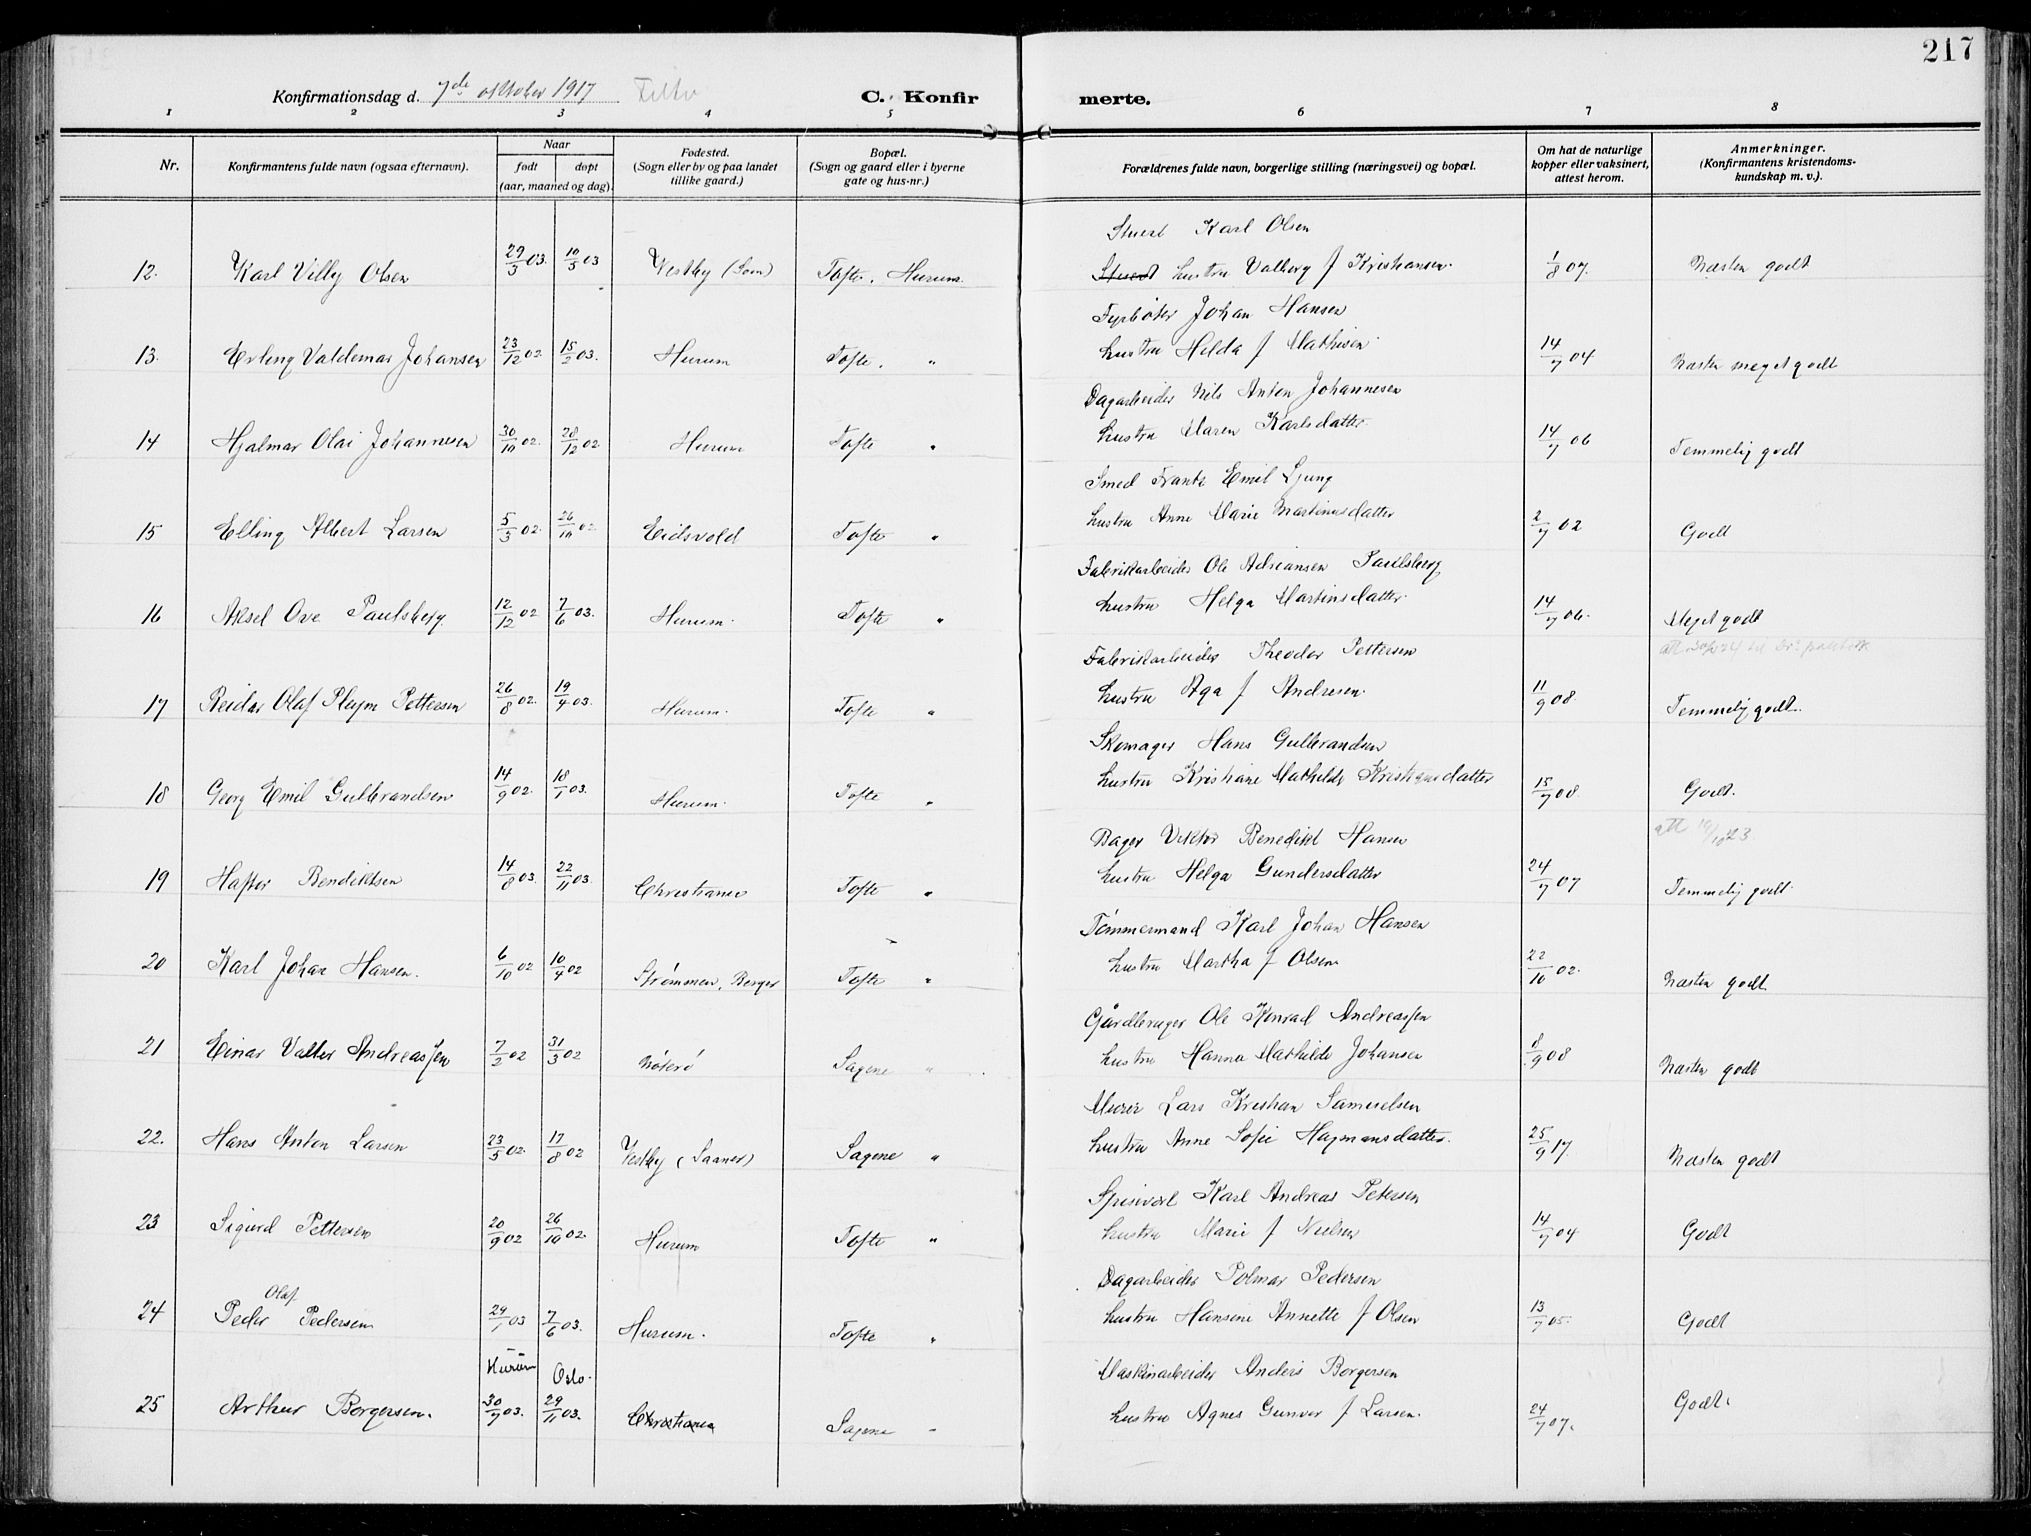 217
Konfirmationsdag d. 7de oktober 1917
C. Konfirmerte.
1 2 3 4 5 6 7 8
Nr.
Konfirmantens fulde navn (ogsaa efternavn).
Naar
født døpt
(aar, maaned og dag).
Fødested.
(Sogn eller by og paa landet
tillike gaard.)
Bopæl.
(Sogn og gaard eller i byerne
gate og hus-nr.)
Forældrenes fulde navn, borgerlige stilling (næringsvei) og bopæl.
Om hat de naturlige
kopper eller vaksinert,
attest herom.
Anmerkninger.
(Konfirmantens kristendoms-
kundskap m. v.).
Stuert Karl Olsen
12. Karl Villy Olsen 29/3 03. 10/5 03 Vestby (Son) Tofte, Hurum. Stuert hustru Valborg f Kristiansen. 1/8 07. Næsten godt
Fyrbøter Johan Hansen
13. Erling Valdemar Johansen 23/12 02. 15/2 03. Hurum Tofte, " hustru Hilda f Mathisen 14/7 04 Næsten meget godt
Dagarbeider Nils Anton Johannesen
14 Hjalmar Olai Johannesen 30/10 02. 28/12 02 Hurum Tofte " hustru Maren Karlsdatter 14/7 06 Temmelig godt
Smed Frants Emil Ljung
15 Elling Albert Larsen 5/3 02. 26/10 02 Eidsvold Tofte " hustru Anne Marie Martinusdatter 2/7 02 Godt
Fabrikarbeider Ole Adriansen Paulsberg
16 Aksel Ove Paulsberg. 12/12 02 7/6 03. Hurum. Tofte " hustru Helga Martinsdatter. 14/7 06. Meget godt
Fabrikarbeider Theodor Pettersen
17 Reidar Olaf Pettersen 26/8 02. 19/4 03. Hurum. Tofte " hustru Aga f Andresen. 11/9 08 Temmelig godt.
Skomager Hans Gulbrandsen
18 Georg Emil Gulbrandsen 14/9 02. 18/1 03. Hurum. Tofte " hustru Kristiane Mathilde Kristiansdatter 15/7 08. Godt.
att 10/10 23
Bager Viktor Benedikt Hansen
19 Haftor Bendiktsen 14/8 03. 22/11 03. Christiania Tofte " hustru Helga Gundersdatter 24/7 07 Temmelig godt.
Tømmermand Karl Johan Hansen
20 Karl Johan Hansen. 6/10 02 10/4 02 Strømmen, Berger Tofte " hustru Martha f Olsen 22/10 02. Næsten godt.
Gårdbruger Ole Konrad Andreassen
21 Einar Valter Andreassen 7/2 02 31/3 02 Nøterø Sagene " hustru Hanna Mathilde Johansen 8/9 08 Næsten godt
Murer Lars Kristian Samuelsen
22. Hans Anton Larsen 23/5 02. 17/8 02 Vestby (Saaner) Sagene " hustru Anne Sofie Hagmansdatter. 25/9 17. Næsten godt
Karl Andreas Petersen
23 Sigurd Pettersen 20/9 02 26/10 02. Hurum Tofte " hustru Marie f Nielsen 14/7 04 Godt
Dagarbeider Polmar Pedersen
Olaf
24 Peder Pedersen 29/1 03 7/6 03. Hurum. Tofte " hustru Hansine Annette f Olsen 13/7 05. Godt
Hurum Oslo.
Maskinarbeider Anders Borgersen
25 Arthur Borgersen. 30/7 03. 29/11 03. Christiania Sagene " hustru Agnes Gunvor f Larsen. 24/7 07. Godt.